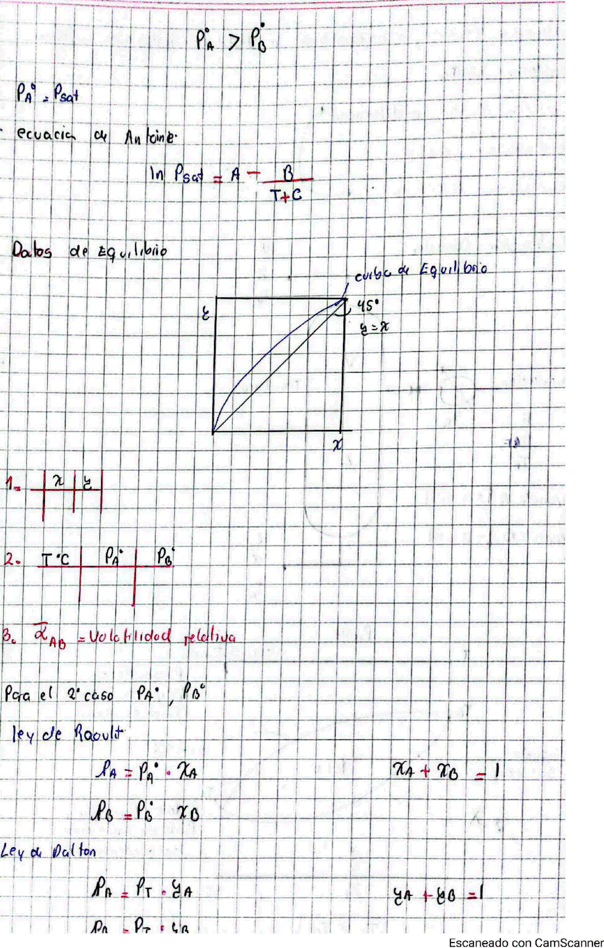 P°A > P°B
PA° = Psat
ecuacia de Antoine.
ln Psat = A - B / T+C
Datos de Equilibrio
curba de Equilibrio
y
45°
y = x
x
1.- x y
2. T°C PA° PB°
3. α̅AB = Volatilidad relativa
Para el 2° caso PA°, PB°
ley de Raoult
PA = PA° · xA
xA + xB = 1
PB = PB° xB
Ley de Dalton
PA = PT · yA
yA + yB = 1
Escaneado con CamScanner